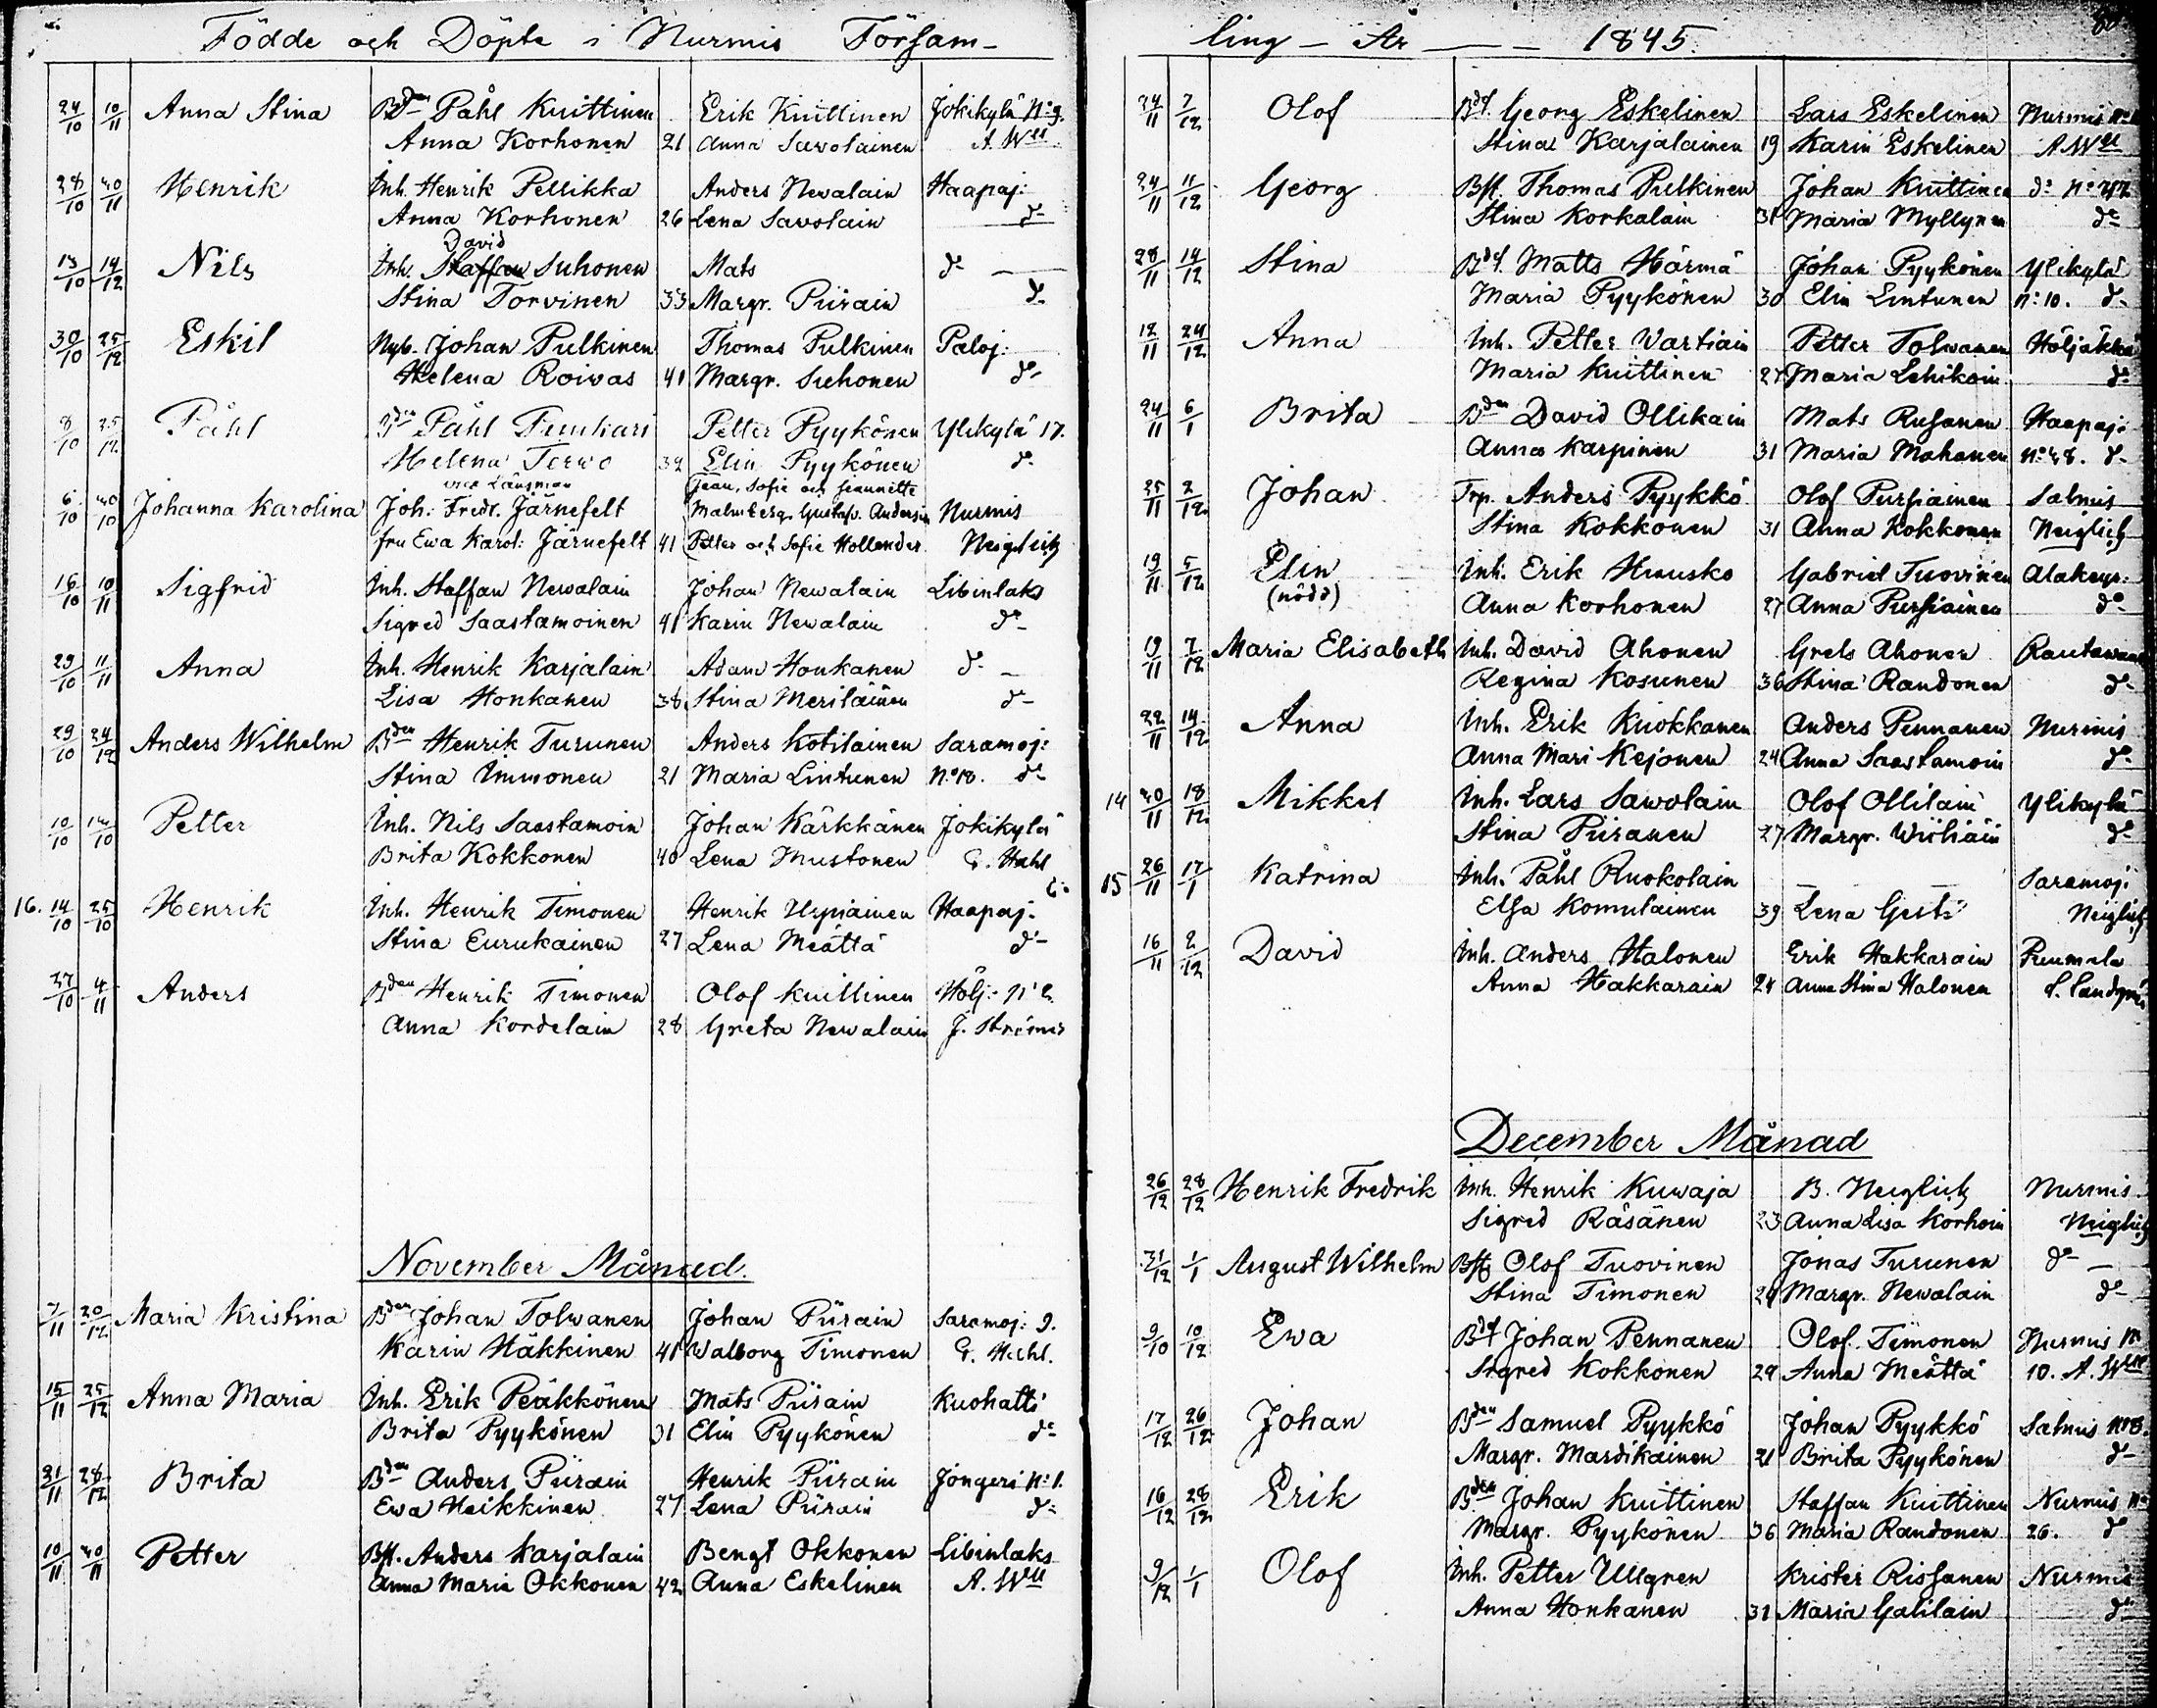 Födde och Döpte i Nurmis Försam-
24/10 10/11 Anna Stina Bden Påhl Kuittinen Erik Kuittinen Jokikylä No 9.
Anna Korhonen 21 Anna Sawolainen A. Wll
28/10 30/11 Henrik Inh. Henrik Pellikka Anders Newalain Haapaj:
Anna Korhonen 26 Lena Savolain do
David
13/10 14/12 Nils Inh. Staffan Suhonen Mats do
Stina Torvinen 33 Margr. Piirain do
30/10 25/12 Eskil Nyb. Johan Pulkinen Thomas Pulkinen Paloj:
Helena Roiwas 41 Margr. Suhonen do
8/10 25/12 Påhl Bden Påhl Petter Pyykönen Ylikylä 17.
Helena Terwo 32 Elin Pyykönen do
vice Länsman Jean, Sofie och Jeannette
6/10 30/10 Johanna Karolina Joh: Fredr. Järnefelt Malmberg, Gustaf. Andersin Nurmis
fru Ewa Karol: Järnefelt 41 Petter och Sofie Hollender Neiglick
16/10 10/11 Sigfrid Inh. Staffan Newalain Johan Newalain Libinlaks
Sigred Saastamoinen 41 Karin Newalain do
29/10 11/11 Anna Inh. Henrik Karjalain Adam Honkanen do
Lisa Honkanen 38 Stina Meriläinen do
29/10 24/12 Anders Wilhelm Bden Henrik Turunen Anders Kotilainen Saramoj:
Stina Immonen 21 Maria Lintunen No 18. do
10/10 14/10 Petter Inh. Nils Saastamoin Johan Kärkkänen Jokikylä
Brita Kokkonen 40 Lena Mustonen G. Hahl
16. 14/10 25/10 Henrik Inh. Henrik Timonen Henrik Urpiainen Haapaj.
Stina Eurukainen 27 Lena Meättä do
27/10 4/11 Anders Bden Henrik Timonen Olof Kuittinen Hölj: No 2.
Anna Kordelain 28 Greta Newalain J. Strömer
November Månad.
7/11 20/12 Maria Kristina Bden Johan Tolwanen Johan Piirain Saramoj: 9.
Karin Häkkinen 41 Walborg Timonen G. Hahl.
15/11 25/12 Anna Maria Inh. Erik Peräkkönen Mats Piirain Kuohatti
Brita Pyykönen 31 Elin Pyykönen do
21/11 28/12 Brita Bden Anders Piirain Henrik Piirain Jongeri No 1.
Ewa Heikkinen 27 Lena Piirain do
10/11 30/11 Petter Bff. Anders Karjalain Bengt Okkonen Libinlaks
Anna Maria Okkonen 42 Anna Eskelinen A. Wll
ling - År - 1845.
24/11 7/12 Olof Bdf. Georg Eskelinen Lars Eskelinen Nurmis
Stina Karjalainen 19 Karin Eskelinen A Wll
24/11 11/12 Georg Bff. Thomas Pulkinen Johan Kuittinen do No 42
Stina Korkalain 31 Maria Myllynen do
28/11 14/12 Stina Bdf. Matts Härmä Johan Pyykönen Ylikylä
Maria Pyykönen 30 Elin Lintunen No: 10. do
12/11 24/12 Anna Inh. Petter Wartiain Petter Tolwanen Höljäkkä
Maria Kuittinen 27 Maria Lehikoin do
24/11 6/1 Brita Bden David Ollikain Mats Rusanen Haapaj.
Anna Karpinen 31 Maria Mahanen No: 48. do
25/11 2/12 Johan Trp. Anders Pyykkö Olof Pursiainen Salmis
Stina Kokkonen 31 Anna Kokkonen Neiglick
19/11 5/12 Elin Inh. Erik Huusko Gabriel Tuovinen Alakeyr:
(nödd) Anna Korhonen 27 Anna Pursiainen do
19/11 7/12 Maria Elisabeth Inh. David Ahonen Grels Ahonen
Regina Kosunen 36 Stina Randonen do
22/11 14/12 Anna Inh. Erik Kuokkanen Anders Pennanen Nurmis
Anna Mari Kejonen 24 Anna Saastamoin do
14 30/11 18/12 Mikkel Inh. Lars Sawolain Olof Ollilain Ylikylä
Stina Piiranen 27 Margr. do
15 26/11 17/1 Katrina Inh. Påhl Ruokolain Saramoj.
Elsa Komulainen 39 Lena Neiglick
16/11 2/12 David Inh. Anders Halonen Erik Hakkarain Puumala
Anna Hakkarain 24 Anna Stina Halonen
December Månad
26/12 28/12 Henrik Fredrik Inh. Henrik Kuwaja B. Neiglick Nurmis
Sigred Räsänen 23 Anna Lisa Korhoin Neiglick
31/12 1/1 August Wilhelm Bff. Olof Tuovinen Jonas Turunen do
Stina Timonen 29 Margr. Newalain do
9/10 10/12 Ewa Bdf Johan Pennanen Olof Timonen Nurmis No
Sigred Kokkonen 29 Anna Meättä 10. A. Wll
17/12 26/12 Johan Bden Samuel Pyykkö Johan Pyykkö Salmis No 8.
Margr. Mardikainen 21 Brita Pyykönen do
16/12 28/12 Erik Bden Johan Kuittinen Staffan Kuittinen Nurmis No
Margr. Pyykönen 36 Maria Randonen 26. do
9/12 1/1 Olof Inh. Petter Ullgren Krister Rissanen Nurmis
Anna Honkanen 31 Maria Galilain do